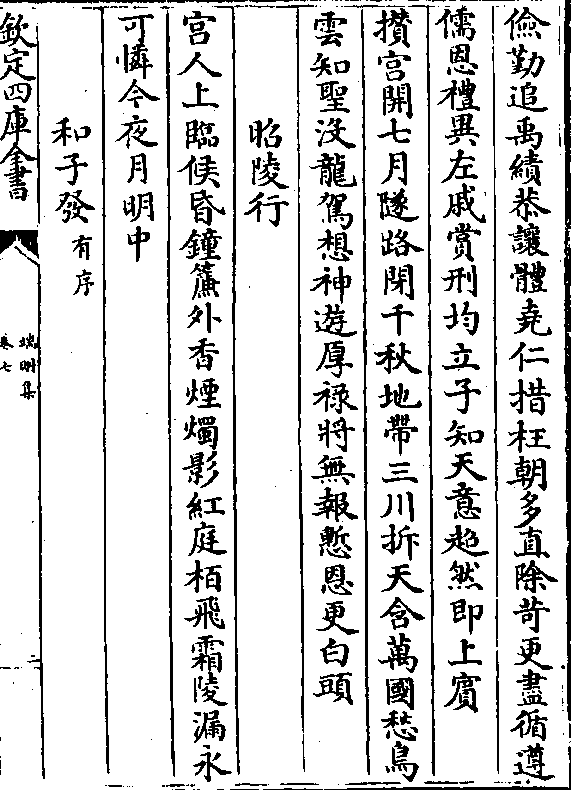 儉勤追禹績恭讓體堯仁措枉朝多直除苛更盡循遵
儒恩禮異左戚賞刑均立子知天意超然即上賓
攅宮開七月隧路閉千秋地帶三川拆天含萬國愁鳥
雲知聖没龍駕想神遊厚祿將無報慙恩更白頭
昭陵行
宮人上臨候昏鐘簾外香煙燭影紅庭栢飛霜陵漏永
可憐今夜月明中
和子發有序
欽定四庫全書
端明集
卷七
二